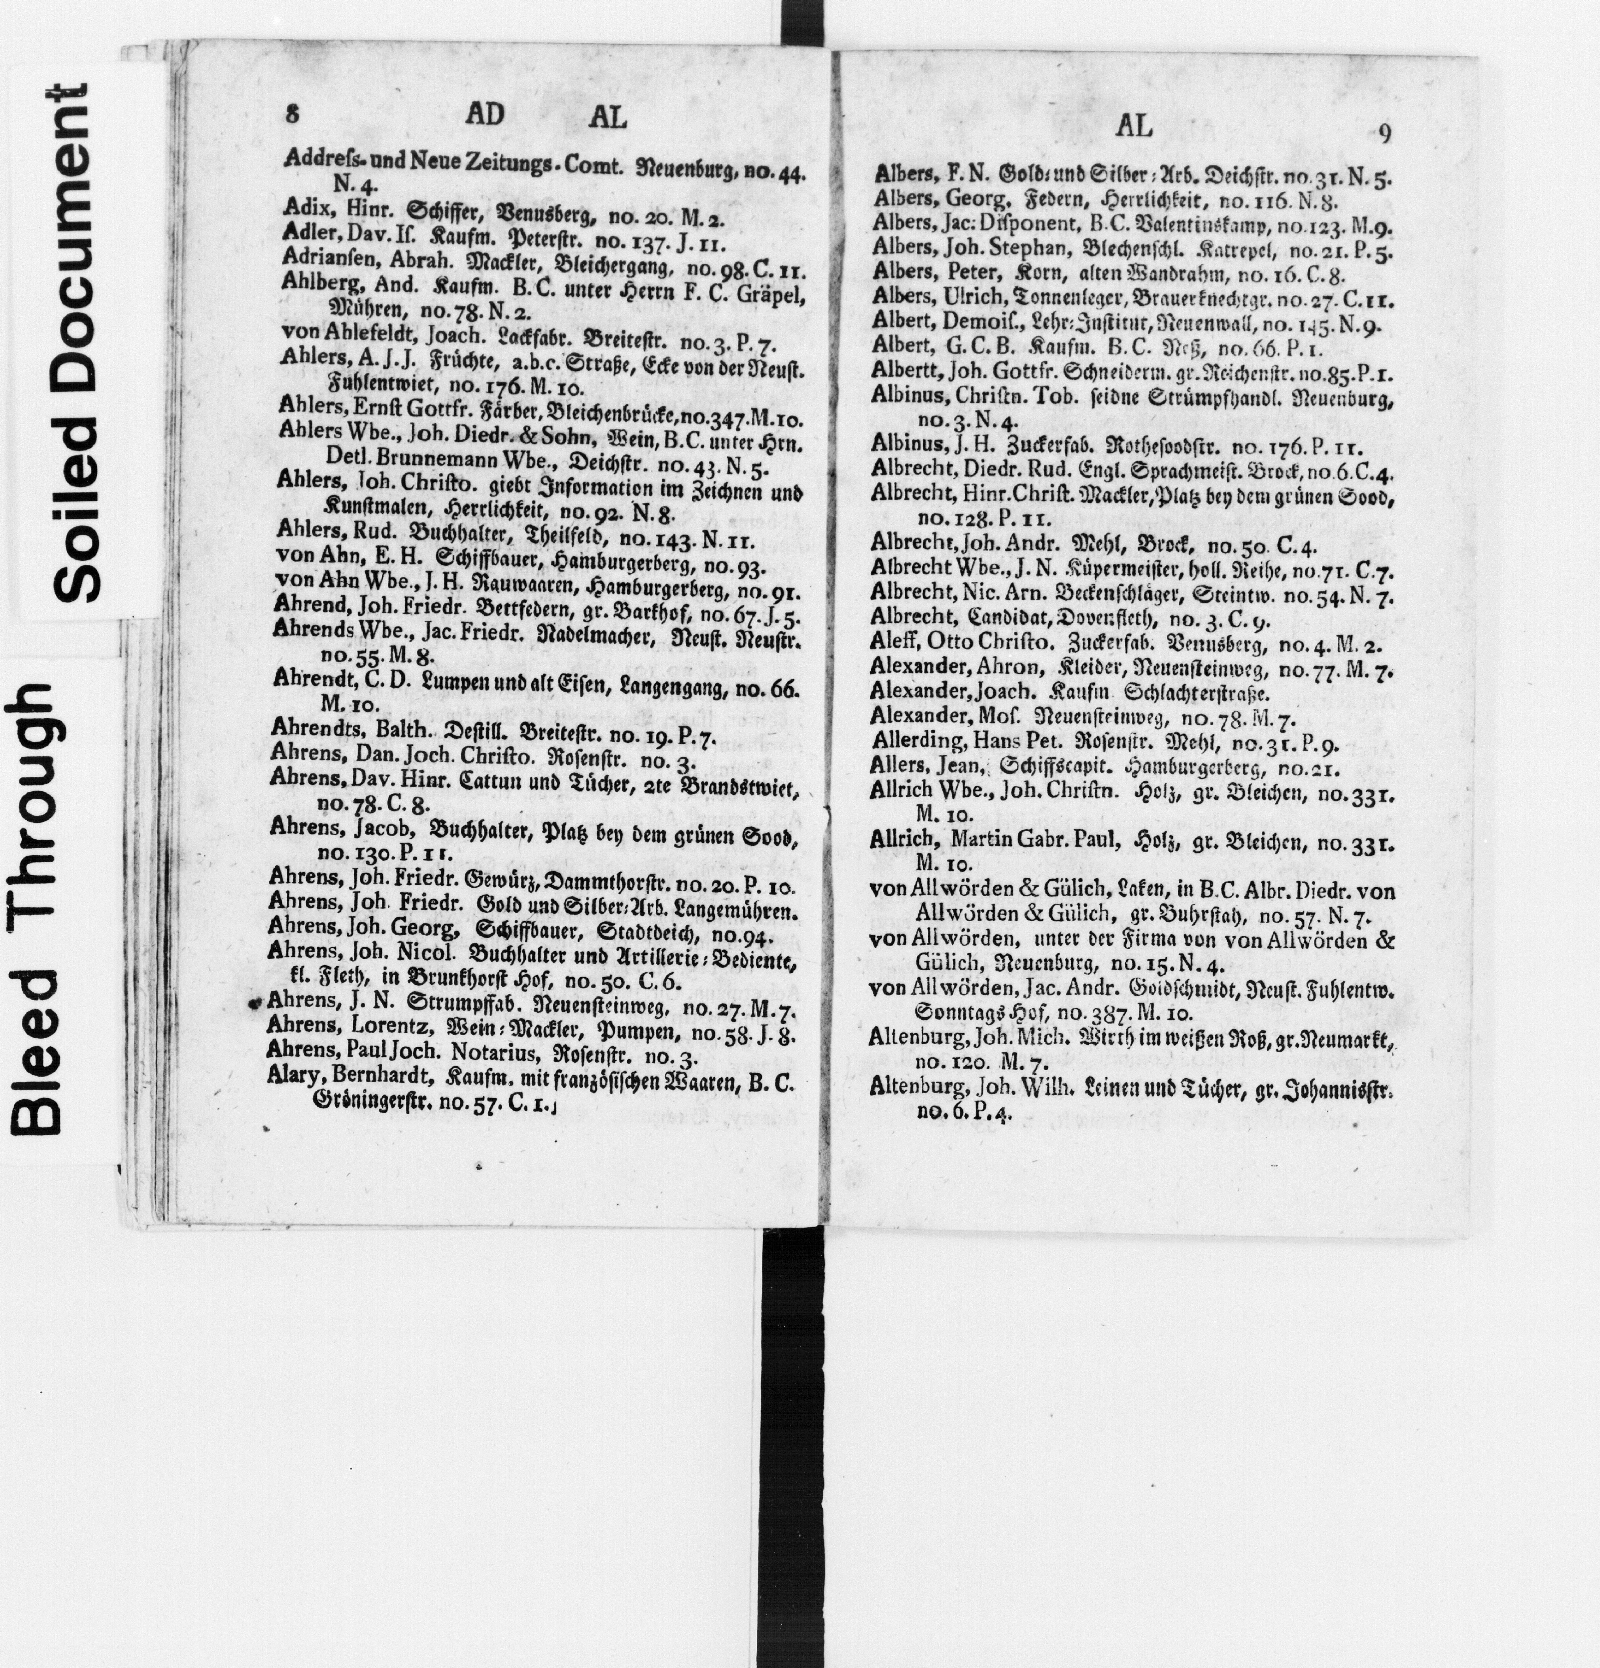 Soiled Document
Bleed Through
8 AD AL
Addreſs- und Neue Zeitungs-Comt. Neuenburg, no. 44.
N. 4.
Adix, Hinr. Schiffer, Venusberg, no. 20. M. 2.
Adler, Dav. Iſ. Kaufm. Peterſtr. no. 137. J. 11.
Adrianſen, Abrah. Mackler, Bleichergang, no. 98. C. 11.
Ahlberg, And. Kaufm. B. C. unter Herrn F. C. Gräpel,
Mühren, no. 78. N. 2.
von Ahlefeldt, Joach. Lackfabr. Breiteſtr. no. 3. P. 7.
Ahlers, A. J. J. Früchte, a.b.c. Straße, Ecke von der Neuſt.
Fuhlentwiet, no. 176. M. 10.
Ahlers, Ernſt Gottfr. Färber, Bleichenbrücke, no. 347. M. 10.
Ahlers Wbe., Joh. Diedr. & Sohn, Wein, B. C. unter Hrn.
Detl. Brunnemann Wbe., Deichſtr. no. 43. N. 5.
Ahlers, Joh. Chriſto. giebt Information im Zeichnen und
Kunſtmalen, Herrlichkeit, no. 92. N. 8.
Ahlers, Rud. Buchhalter, Theilfeld, no. 143. N. 11.
von Ahn, E. H. Schiffbauer, Hamburgerberg, no. 93.
von Ahn Wbe., J. H. Rauwaaren, Hamburgerberg, no. 91.
Ahrend, Joh. Friedr. Bettfedern, gr. Barkhof, no. 67. J. 5.
Ahrends Wbe., Jac. Friedr. Nadelmacher, Neuſt. Neuſtr.
no. 55. M. 8.
Ahrendt, C. D. Lumpen und alt Eiſen, Langengang, no. 66.
M. 10.
Ahrendts, Balth. Deſtill. Breiteſtr. no. 19. P. 7.
Ahrens, Dan. Joch. Chriſto. Roſenſtr. no. 3.
Ahrens, Dav. Hinr. Cattun und Tücher, 2te Brandstwiet,
no. 78. C. 8.
Ahrens, Jacob, Buchhalter, Platz bey dem grünen Sood,
no. 130. P. 11.
Ahrens, Joh. Friedr. Gewürz, Dammthorſtr. no. 20. P. 10.
Ahrens, Joh. Friedr. Gold und Silber-Arb. Langemühren.
Ahrens, Joh. Georg, Schiffbauer, Stadtdeich, no. 94.
Ahrens, Joh. Nicol. Buchhalter und Artillerie-Bediente,
kl. Fleth, in Brunkhorſt Hof, no. 50. C. 6.
Ahrens, J. N. Strumpffab. Neuenſteinweg, no. 27. M. 7.
Ahrens, Lorentz, Wein-Mackler, Pumpen, no. 58. J. 8.
Ahrens, Paul Joch. Notarius, Roſenſtr. no. 3.
Alary, Bernhardt, Kaufm. mit franzöſiſchen Waaren, B. C.
Gröningerſtr. no. 57. C. 1.
AL 9
Albers, F. N. Gold- und Silber-Arb. Deichſtr. no. 31. N. 5.
Albers, Georg, Federn, Herrlichkeit, no. 116. N. 8.
Albers, Jac. Diſponent, B. C. Valentinskamp, no. 123. M. 9.
Albers, Joh. Stephan, Blechenſchl. Katrepel, no. 21. P. 5.
Albers, Peter, Korn, alten Wandrahm, no. 16. C. 8.
Albers, Ulrich, Tonnenleger, Brauerknechtgr. no. 27. C. 11.
Albert, Demoiſ., Lehr-Inſtitut, Neuenwall, no. 145. N. 9.
Albert, G. C. B. Kaufm. B. C. Neß, no. 66. P. 1.
Albertt, Joh. Gottfr. Schneiderm. gr. Reichenſtr. no. 85. P. 1.
Albinus, Chriſtn. Tob. ſeidne Strümpfhandl. Neuenburg,
no. 3. N. 4.
Albinus, J. H. Zuckerfab. Rotheſoodſtr. no. 176. P. 11.
Albrecht, Diedr. Rud. Engl. Sprachmeiſt. Brock, no. 6. C. 4.
Albrecht, Hinr. Chriſt. Mackler, Platz bey dem grünen Sood,
no. 128. P. 11.
Albrecht, Joh. Andr. Mehl, Brock, no. 50. C. 4.
Albrecht Wbe., J. N. Küpermeiſter, holl. Reihe, no. 71. C. 7.
Albrecht, Nic. Arn. Beckenſchläger, Steintw. no. 54. N. 7.
Albrecht, Candidat, Dovenfleth, no. 3. C. 9.
Aleff, Otto Chriſto. Zuckerfab. Venusberg, no. 4. M. 2.
Alexander, Ahron, Kleider, Neuenſteinweg, no. 77. M. 7.
Alexander, Joach. Kaufm Schlachterſtraße.
Alexander, Moſ. Neuenſteinweg, no. 78. M. 7.
Allerding, Hans Pet. Roſenſtr. Mehl, no. 31. P. 9.
Allers, Jean, Schiffscapit. Hamburgerberg, no. 21.
Allrich Wbe., Joh. Chriſtn. Holz, gr. Bleichen, no. 331.
M. 10.
Allrich, Martin Gabr. Paul, Holz, gr. Bleichen, no. 331.
M. 10.
von Allwörden & Gülich, Laken, in B. C. Albr. Diedr. von
Allwörden & Gülich, gr. Buhrſtah, no. 57. N. 7.
von Allwörden, unter der Firma von von Allwörden &
Gülich, Neuenburg, no. 15. N. 4.
von Allwörden, Jac. Andr. Goldſchmidt, Neuſt. Fuhlentw.
Sonntags Hof, no. 387. M. 10.
Altenburg, Joh. Mich. Wirth im weißen Roß, gr. Neumarkt,
no. 120. M. 7.
Altenburg, Joh. Wilh. Leinen und Tücher, gr. Johannisſtr.
no. 6. P. 4.